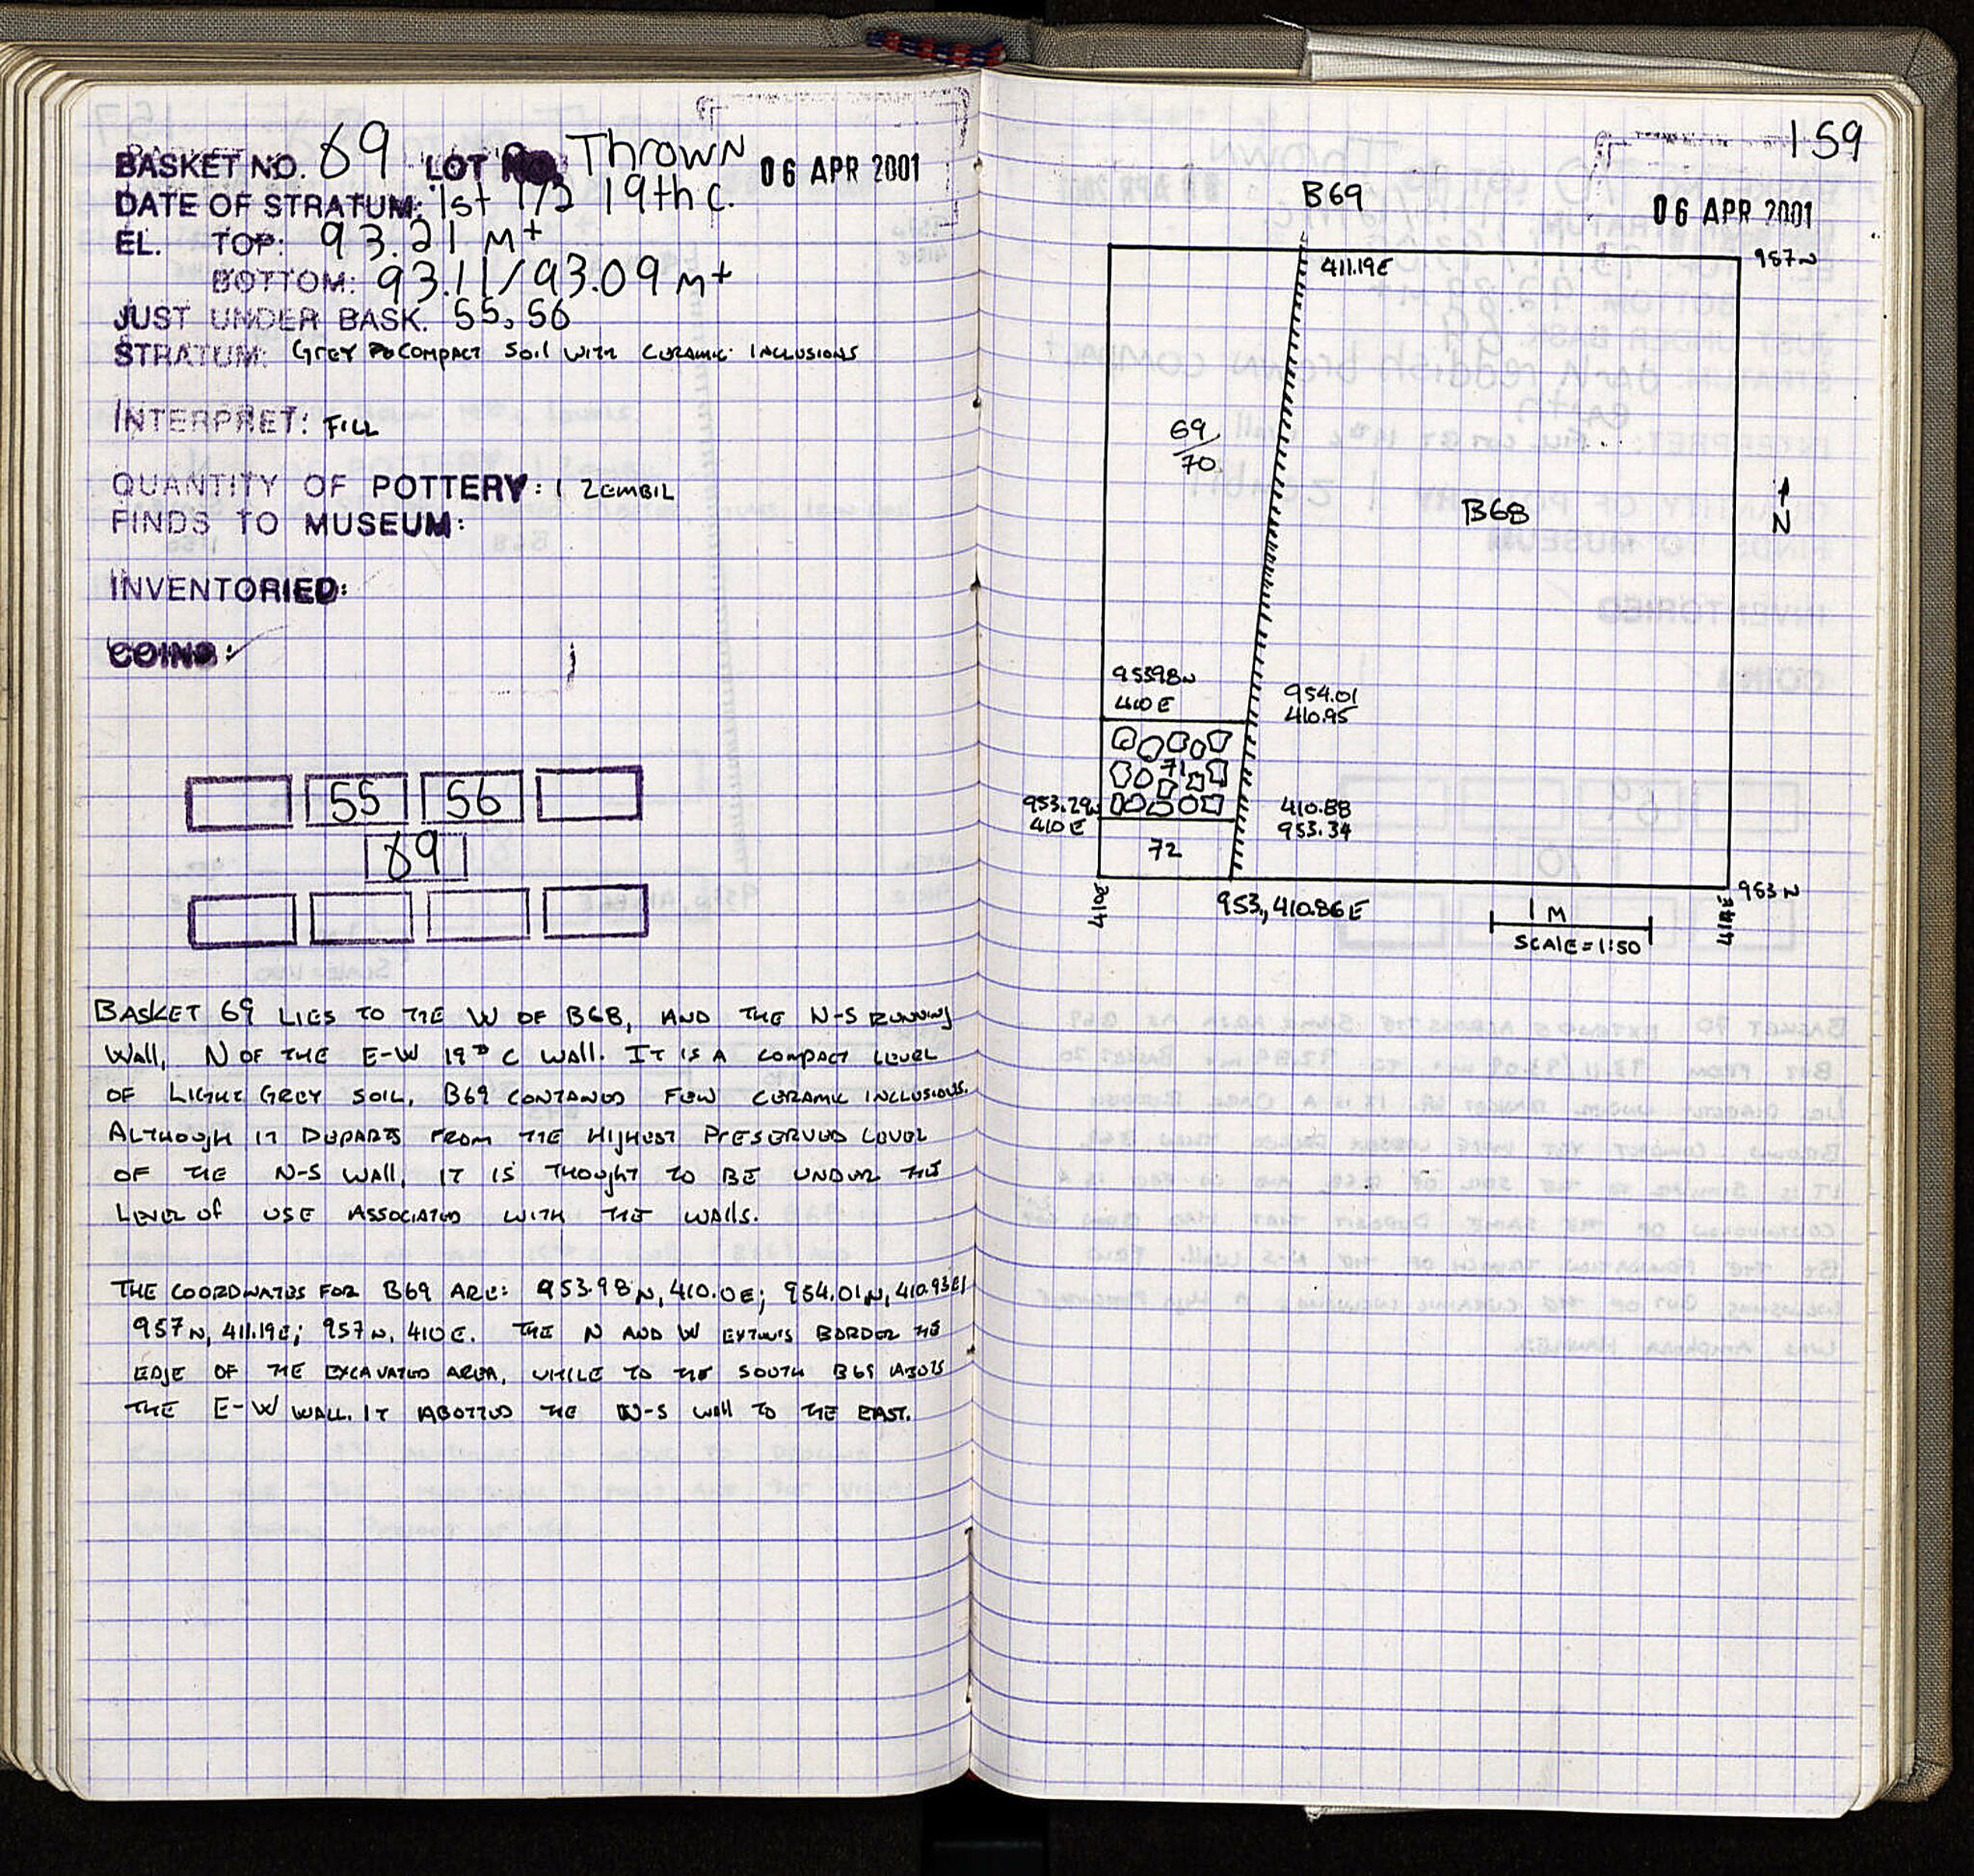 BASKET NO. 69 LOT Thrown 06 APR 2001
DATE OF STRATUM: 1st 1/2 19th c.
EL. TOP: 93.21 m+
BOTTOM: 93.11/93.09 m+
JUST UNDER BASK. 55, 56
STRATUM: Grey Compact Soil with ceramic inclusions
INTERPRET: Fill
QUANTITY OF POTTERY: 1 Zembil
FINDS TO MUSEUM:
INVENTORIED:
COINS:
55 56
69
BASKET 69 LIES TO THE W OF B68, AND THE N-S RUNNING
WALL, N OF THE E-W 19th C WALL. IT IS A COMPACT LEVEL
OF LIGHT GREY SOIL, B69 CONTAINED FEW CERAMIC INCLUSIONS.
ALTHOUGH IT DEPARTS FROM THE HIGHEST PRESERVED LEVEL
OF THE N-S WALL, IT IS THOUGHT TO BE UNDER THE
LEVEL OF USE ASSOCIATED WITH THE WALLS.
THE COORDINATES FOR B69 ARE: 953.98N, 410.0E; 954.01N, 410.93E;
957N, 411.19E; 957N, 410E. THE N AND W EXTENTS BORDER THE
EDGE OF THE EXCAVATED AREA, WHILE TO THE SOUTH B69 ABUTS
THE E-W WALL. IT ABOTTED THE N-S WALL TO THE EAST.
159
B69
06 APR 2001
411.19E
957N
69
70
B68
N
95398N
410E
954.01
410.95
71
953.29N
410E
410.88
953.34
72
410E
953, 410.86E
953N
414E
1 M
SCALE = 1:50